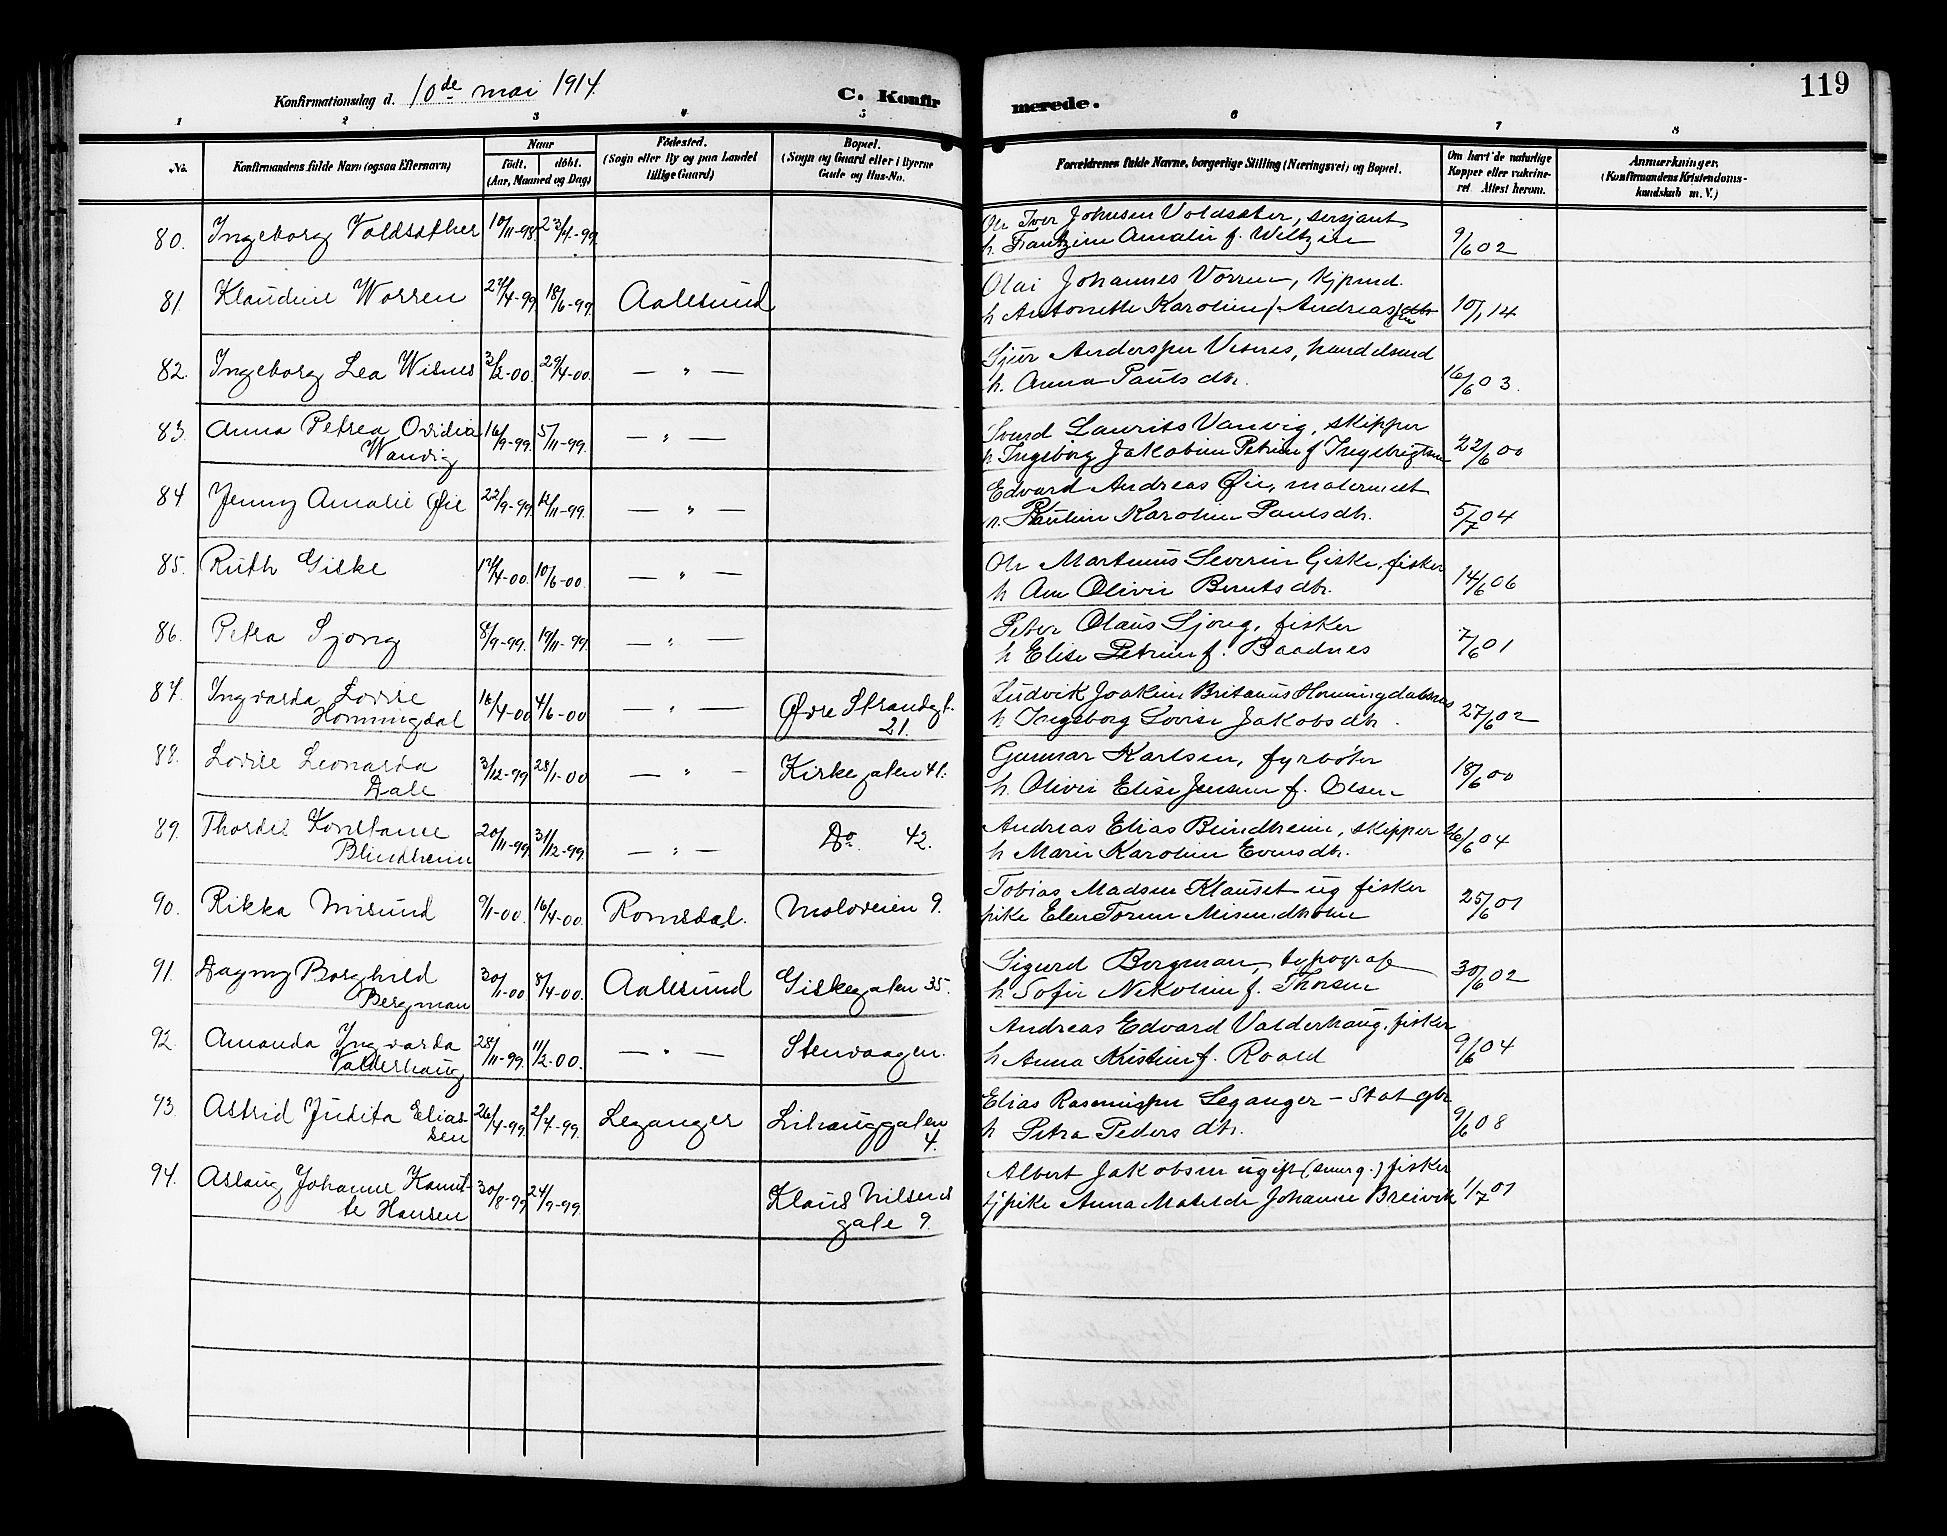 119
Konfirmationsdag d. 10de mai 1914
C. Konfirmerede.
1 2 3 4 5 6 7 8
No. Konfirmandens fulde Navn (ogsaa Efternavn) Naar født. døbt. (Aar, Maaned og Dag) Fødested. (Sogn eller By og paa Landet tillige Gaard) Bopæl. (Sogn og Gaard eller i Byerne Gade og Hus-No. Forældrenes fulde Navne, borgerlige Stilling (Næringsvei) og Bopæl. Om havt de naturlige Kopper eller vakcineret. Attest herom. Anmærkninger. (Konfirmandens Kristendomskundskab m. V.)
80. Ingeborg Voldsæther 10/11-98. 23/4-99. Ole Iver Johnsen Voldsæter, sersjant
h. Frantzine Amalie f. Weltzien 9/6 02
81 Klaudine Worren 27/4-99 18/6-99. Aalesund Olai Johannes Vorren, kjpmd.
h Antonette Karoline Andreas dtr 10/1 14
82. Ingeborg Lea Wisnes 3/2-00. 29/4-00. — " — Sjur Anderssen Visnes, handelsmd
h. Anna Pauls dtr. 16/6 03.
83. Anna Petrea Ovidia 16/9-99. 5/11-99. — " — Svend Laurits Vanvig, skipper
Wanvig h Ingeborg Jakobine Petrine f Ingebrigtsen 22/6 00
84 Jenny Amalie Øie 22/9-99. 12/11-99. — " — Edvard Andreas Øie, malermest
h. Pauline Karoline Paulsdtr. 5/7 04
85. Ruth Giske 17/4-00. 10/6-00. — " — Ole Martinus Severin Giske, fisker
h Ane Olivie Berntsdtr. 14/6 06
86. Petra Sjong 8/9-99. 19/11-99. — " — Peter Olaus Sjong, fisker
h Elise Petrine f. Baadnes 7/6 01
87. Ingvarda Lovise 16/4-00 4/6-00 — " — Øvre Strandgt. Ludvik Joakim Britanus Horningdalsnes
Horningdal 21. h Ingeborg Lovise Jakobsdtr. 27/6 02
88. Lovise Leonarda 3/12-99 28/1-00 — " — Kirkegaten 41. Gunnar Karlsen, fyrbøter
Dale h. Olivie Elise Jensen f. Olsen 18/6 00
89. Thordis Konstanse 20/11-99. 31/12-99. — " — Do. 42. Andreas Elias Blindheim, skipper
Blindheim h Marie Karoline Evensdtr. 26/6 04
90. Rikka Misund 9/1-00. 16/4-00. Romsdal. Moloveien 9. Tobias Madsen Klauset ug fisker
pike Elen Torine Misundholm 25/6 01
91. Dagny Borghild 30/1-00 8/4-00. Aalesund Giskegaten 35. Sigurd Bergman, typograf
Bergman h. Sofie Nikoline f. Thorsen 30/6 02
92. Amanda Ingvarda 28/11-99. 11/2-00. — " — Stenvaagen. Andreas Edvard Valderhaug, fisker
Valderhaug h Anna Kristine f. Roald 9/6 04
93. Astrid Judita Elias- 26/4-99. 2/4-99. Leganger Lihauggaten Elias Rasmussen Leganger – Stat gbr
sen 4. h Petra Peders dtr. 9/6 08
94. Aslaug Johanne Kamit- 30/8-99 24/9-99. Klaus Nilsens Albert Jakobsen ugift (senerg.) fisker
te Hansen gate 9. tjpike Anna Matilde Johanne Breivik 1/7 01